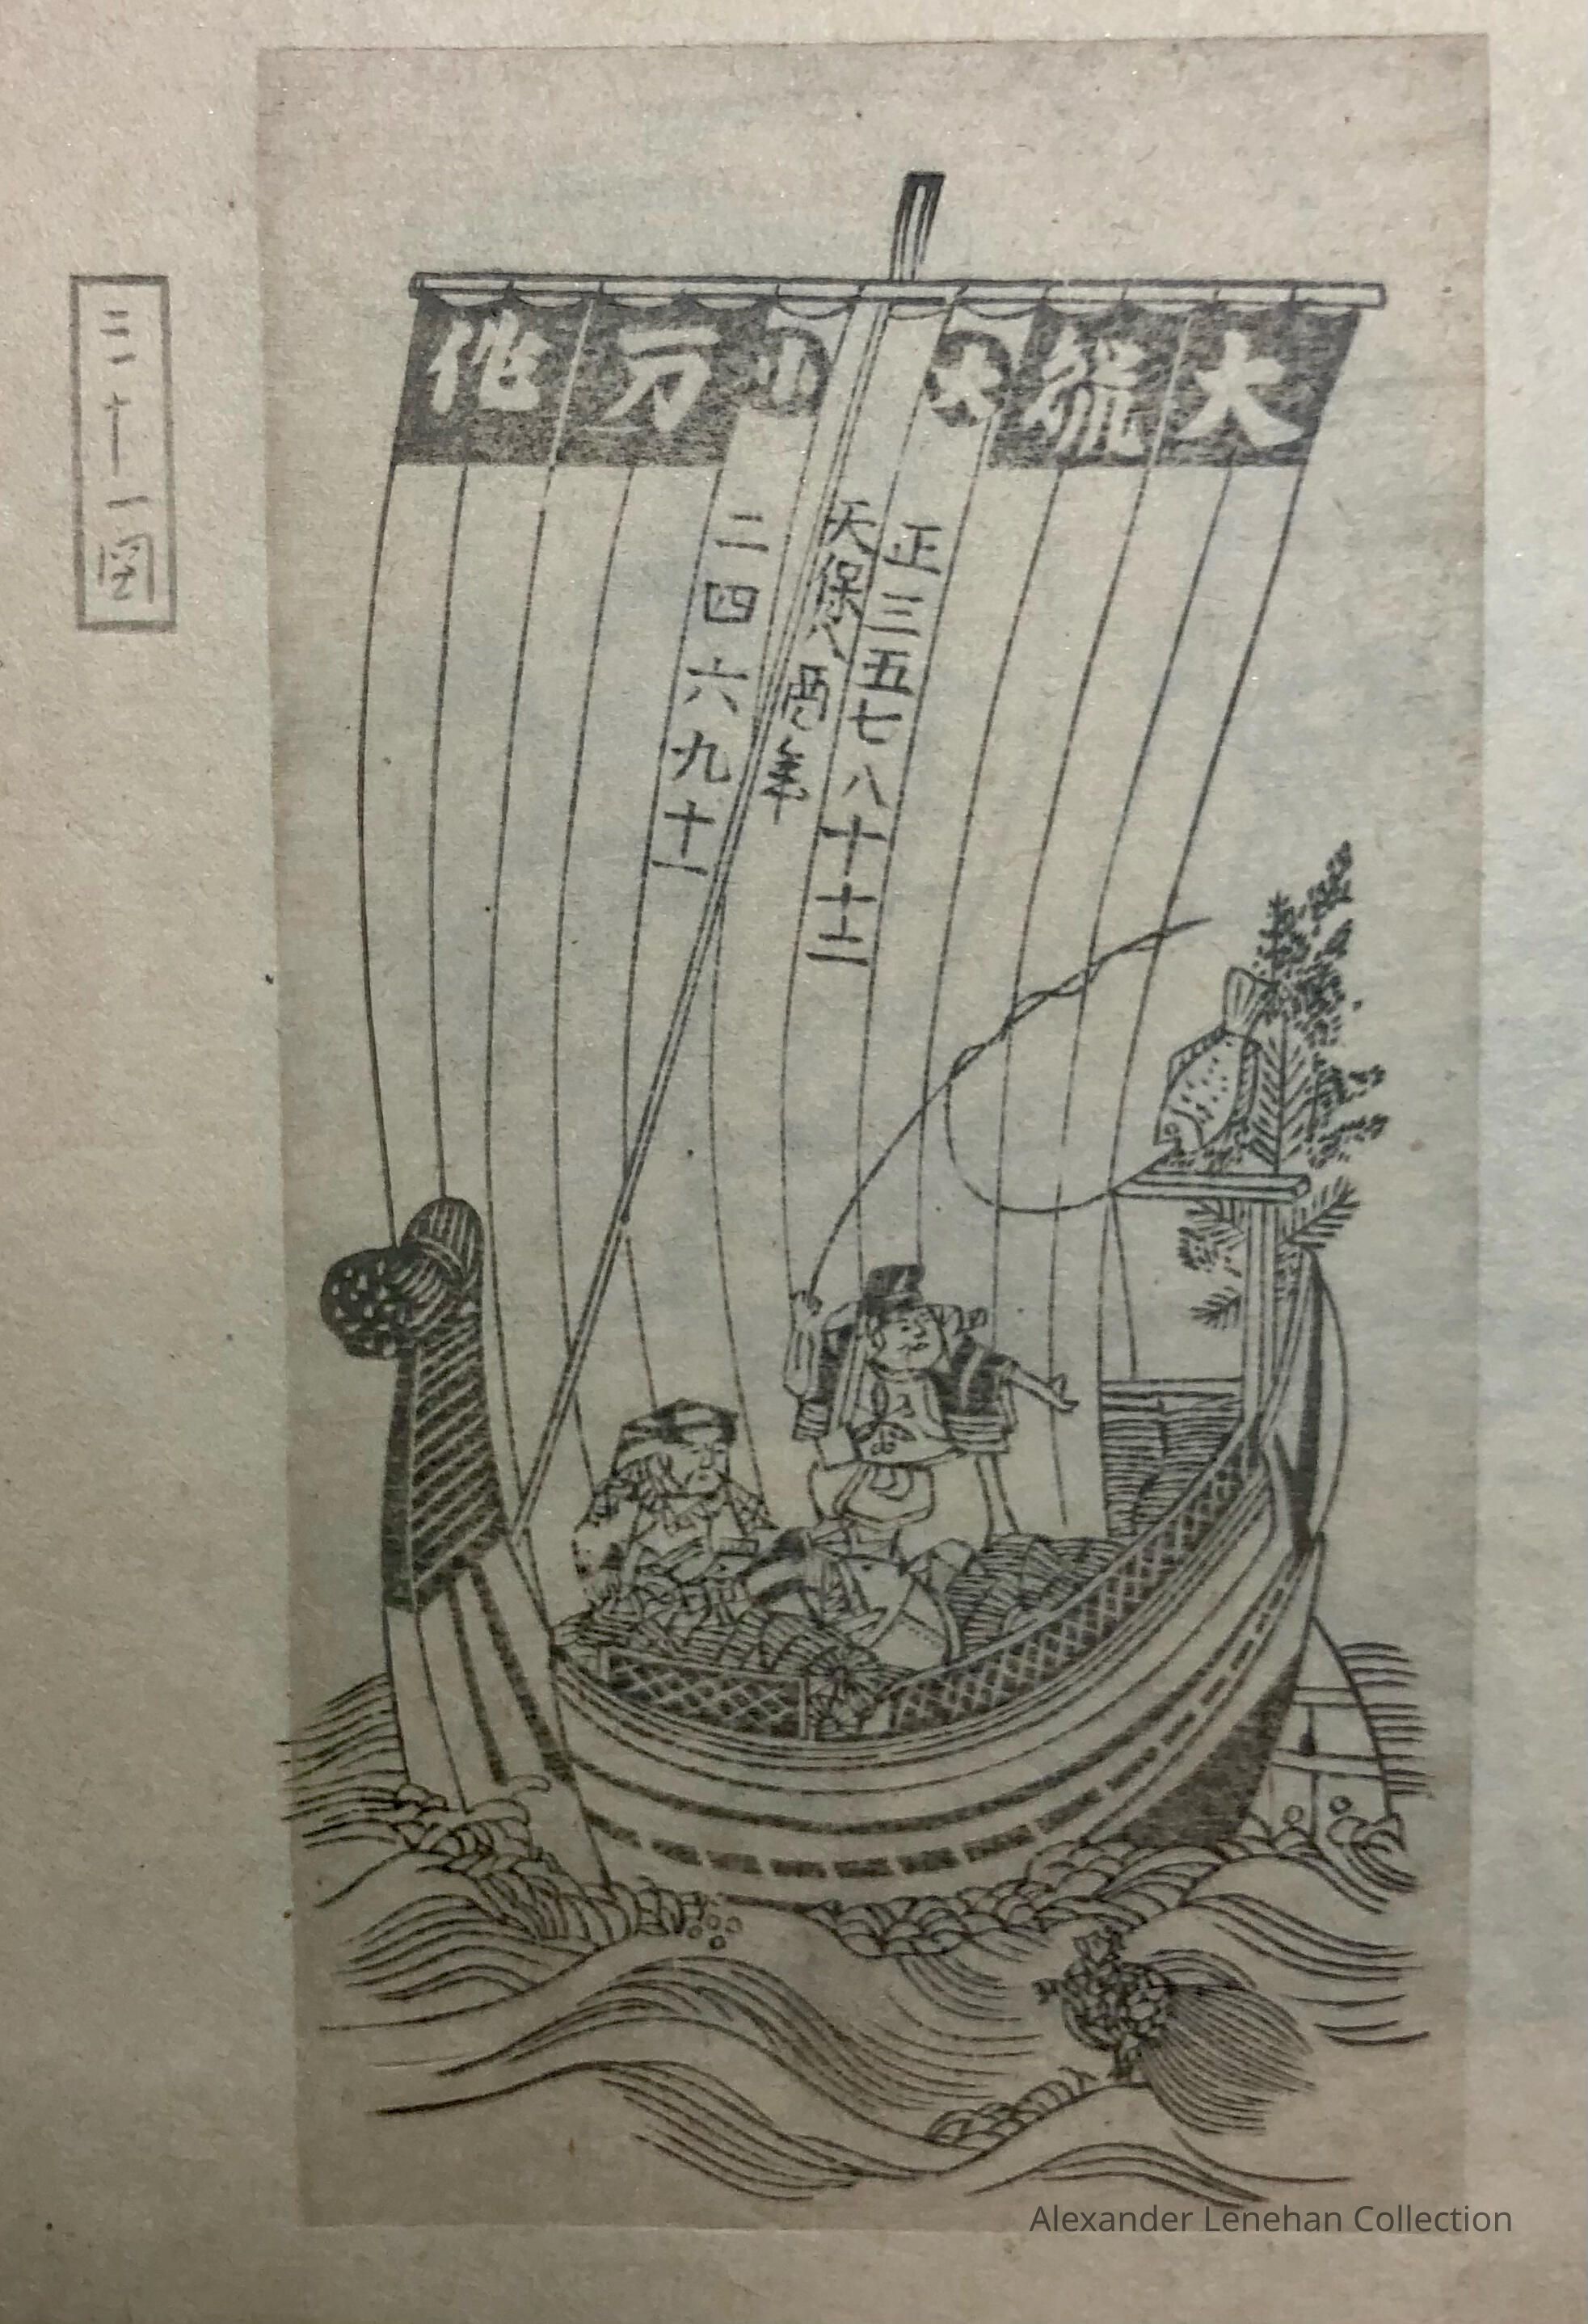 大
大
小
万
正三五七八十十二
天保八酉年
二四六九十一
三十一図
Alexander Lenehan Collection